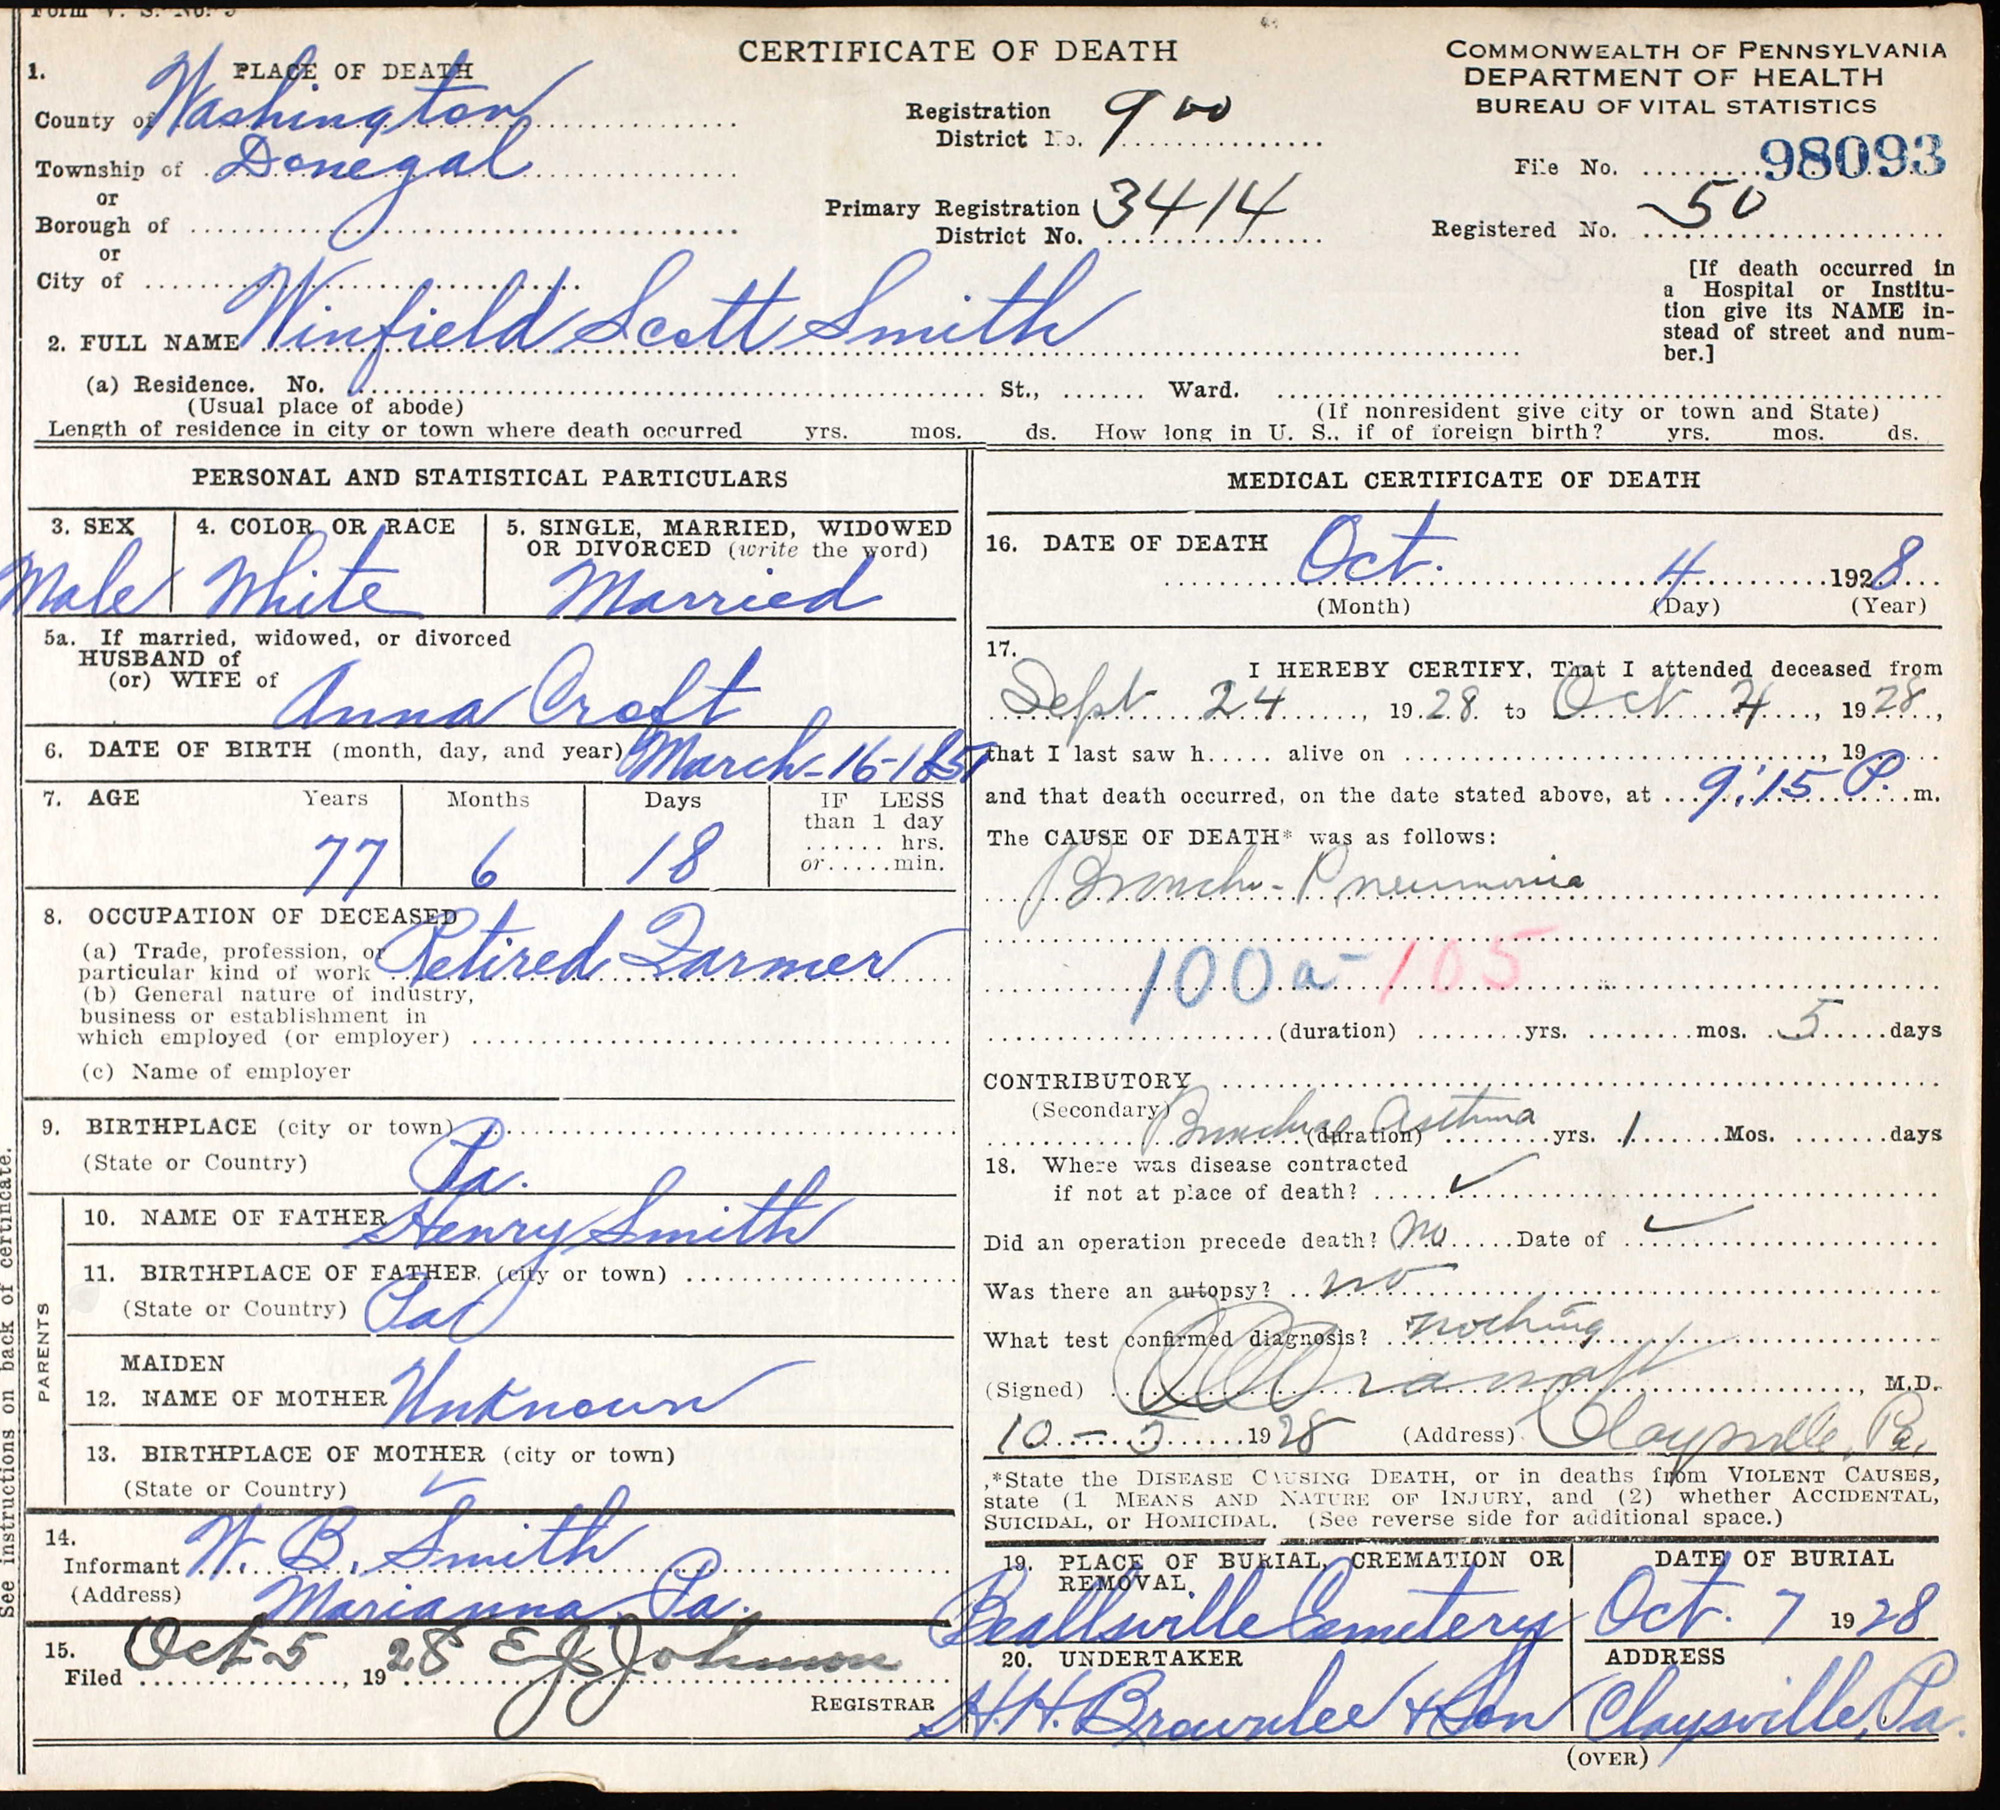 Form V. S. No. 5
CERTIFICATE OF DEATH
COMMONWEALTH OF PENNSYLVANIA
DEPARTMENT OF HEALTH
BUREAU OF VITAL STATISTICS
1. PLACE OF DEATH
County of Washington
Township of Donegal
or
Borough of
or
City of
Registration District No. 900
Primary Registration District No. 3414
File No. 98093
Registered No. 50
[If death occurred in
a Hospital or Institu-
tion give its NAME in-
stead of street and num-
ber.]
2. FULL NAME Winfield Scott Smith
(a) Residence. No. St., Ward.
(Usual place of abode) (If nonresident give city or town and State)
Length of residence in city or town where death occurred yrs. mos. ds. How long in U. S., if of foreign birth? yrs. mos. ds.
PERSONAL AND STATISTICAL PARTICULARS
3. SEX
Male
4. COLOR OR RACE
White
5. SINGLE, MARRIED, WIDOWED
OR DIVORCED (write the word)
Married
5a. If married, widowed, or divorced
HUSBAND of
(or) WIFE of
Anna Croft
6. DATE OF BIRTH (month, day, and year) March-16-1851
7. AGE Years Months Days IF LESS
than 1 day
hrs.
or min.
77 6 18
8. OCCUPATION OF DECEASED
(a) Trade, profession, or
particular kind of work Retired Farmer
(b) General nature of industry,
business or establishment in
which employed (or employer)
(c) Name of employer
9. BIRTHPLACE (city or town)
(State or Country) Pa.
PARENTS
10. NAME OF FATHER Henry Smith
11. BIRTHPLACE OF FATHER (city or town)
(State or Country) Pa
MAIDEN
12. NAME OF MOTHER Unknown
13. BIRTHPLACE OF MOTHER (city or town)
(State or Country) ✓
14.
Informant W. B. Smith
(Address) Marianna, Pa.
15.
Filed Oct 5, 1928 E J Johnson
REGISTRAR
MEDICAL CERTIFICATE OF DEATH
16. DATE OF DEATH
Oct. 4 1928
(Month) (Day) (Year)
17.
I HEREBY CERTIFY, That I attended deceased from
Sept 24, 1928 to Oct 4, 1928,
that I last saw h alive on , 19
and that death occurred, on the date stated above, at 9:15 P. m.
The CAUSE OF DEATH* was as follows:
Broncho-Pneumonia
100a-105
(duration) yrs. mos. 5 days
CONTRIBUTORY
(Secondary) Bronchial Asthma
(duration) yrs. 1 Mos. days
18. Where was disease contracted
if not at place of death? ✓
Did an operation precede death? No Date of ✓
Was there an autopsy? no
What test confirmed diagnosis? nothing
(Signed) , M.D.
10-5 1928 (Address) Claysville, Pa.
*State the DISEASE CAUSING DEATH, or in deaths from VIOLENT CAUSES,
state (1 MEANS AND NATURE OF INJURY, and (2) whether ACCIDENTAL,
SUICIDAL, or HOMICIDAL. (See reverse side for additional space.)
19. PLACE OF BURIAL, CREMATION OR
REMOVAL
Beallsville Cemetery
DATE OF BURIAL
Oct. 7 1928
20. UNDERTAKER
H. H. Brownlee & Son
ADDRESS
Claysville, Pa.
(OVER)
See instructions on back of certificate.